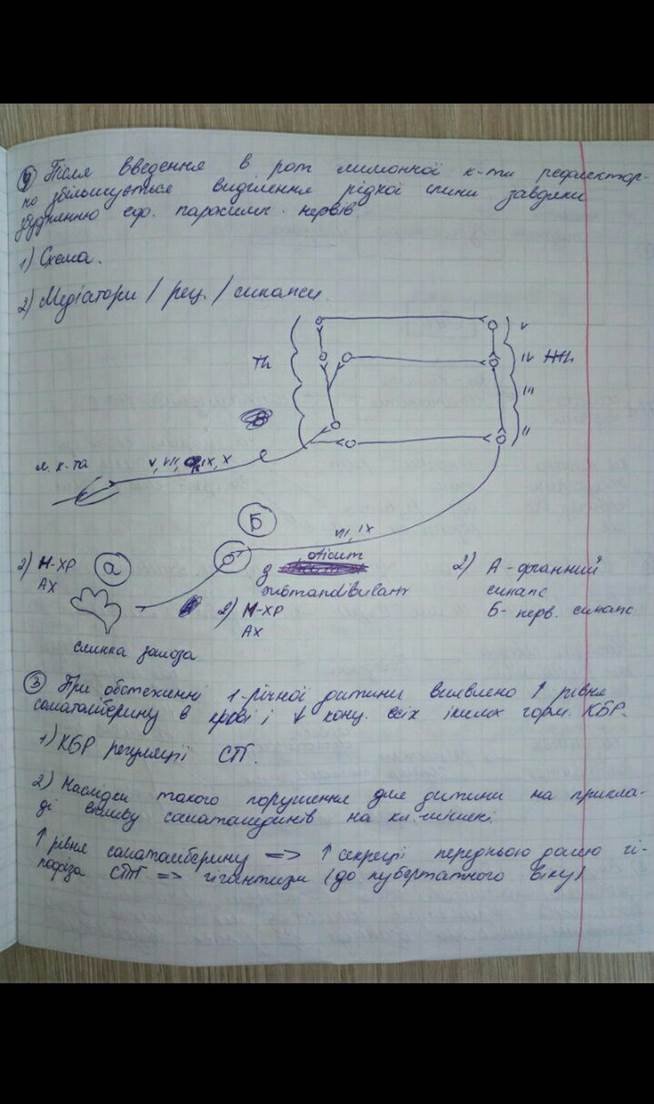 ② Після введення в рот лимонної к-ти рефлектор-
но збільшується виділення рідкої слини завдяки
збудженню еф. парасимп. нервів
1) Схема.
2) Медіатори / рец. / синапси.
V
Th
IV
III
II
л. к-та
V, VII, IX, X
Б
VII, IX
2) М-ХР
АХ
а
g oticum
submandibulare
2) М-ХР
АХ
2) А - органний
синапс
Б - нерв. синапс
слинна залоза
③ При обстеженні 1-річної дитини виявлено ↑ рівне
соматоліберину в крові і ↓ конц. всіх інших горм. КБР.
1) КБР регуляції СТГ.
2) Наслідки такого порушення для дитини на прикла-
ді впливу соматомединів на кл. мішені.
↑ рівне соматоліберину => ↑ секреції передньою долею гі-
пофіза СТГ => гігантизм (до пубертатного віку)